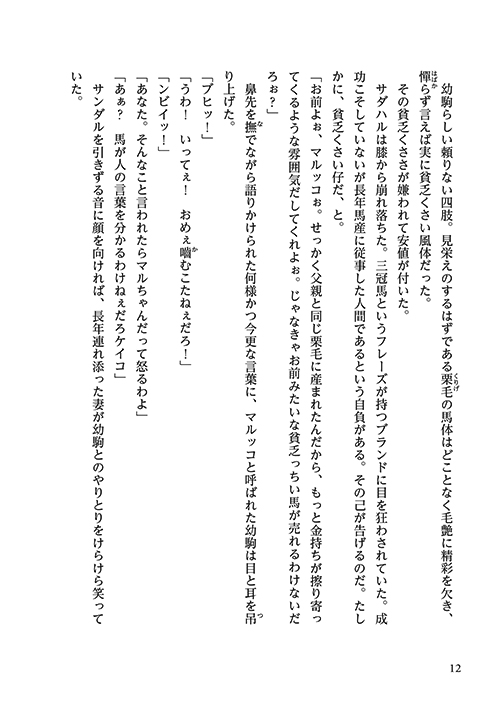 幼駒らしい頼りない四肢。見栄えのするはずである栗毛の馬体はどことなく毛艶に精彩を欠き、
憚らず言えば実に貧乏くさい風体だった。
その貧乏くささが嫌われて安値が付いた。
サダハルは膝から崩れ落ちた。三冠馬というフレーズが持つブランドに目を狂わされていた。成
功こそしていないが長年馬産に従事した人間であるという自負がある。その己が告げるのだ。たし
かに、貧乏くさい仔だ、と。
「お前よぉ、マルッコぉ。せっかく父親と同じ栗毛に産まれたんだから、もっと金持ちが擦り寄っ
てくるような雰囲気だしてくれよぉ。じゃなきゃお前みたいな貧乏っちい馬が売れるわけないだ
ろぉ？」
鼻先を撫でながら語りかけられた何様かつ今更な言葉に、マルッコと呼ばれた幼駒は目と耳を吊
り上げた。
「ブヒッ！」
「うわ！　いってぇ！　おめぇ嚙むこたねぇだろ！」
「ンビイッ！」
「あなた。そんなこと言われたらマルちゃんだって怒るわよ」
「あぁ？　馬が人の言葉を分かるわけねぇだろケイコ」
サンダルを引きずる音に顔を向ければ、長年連れ添った妻が幼駒とのやりとりをけらけら笑って
いた。
12